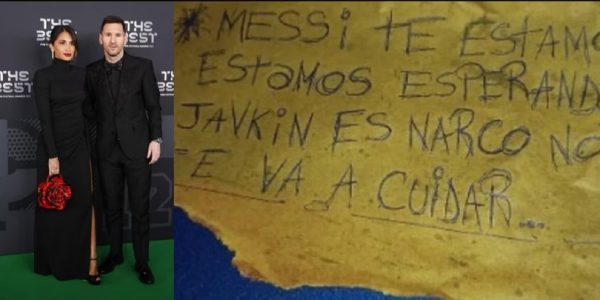 THE
BEST
THE
BEST
THE
BEST
THE
*MESSI TE ESTAMO
ESTAMOS ESPERAND
JAVKIN ES NARCO NO
TE VA A CUIDAR...